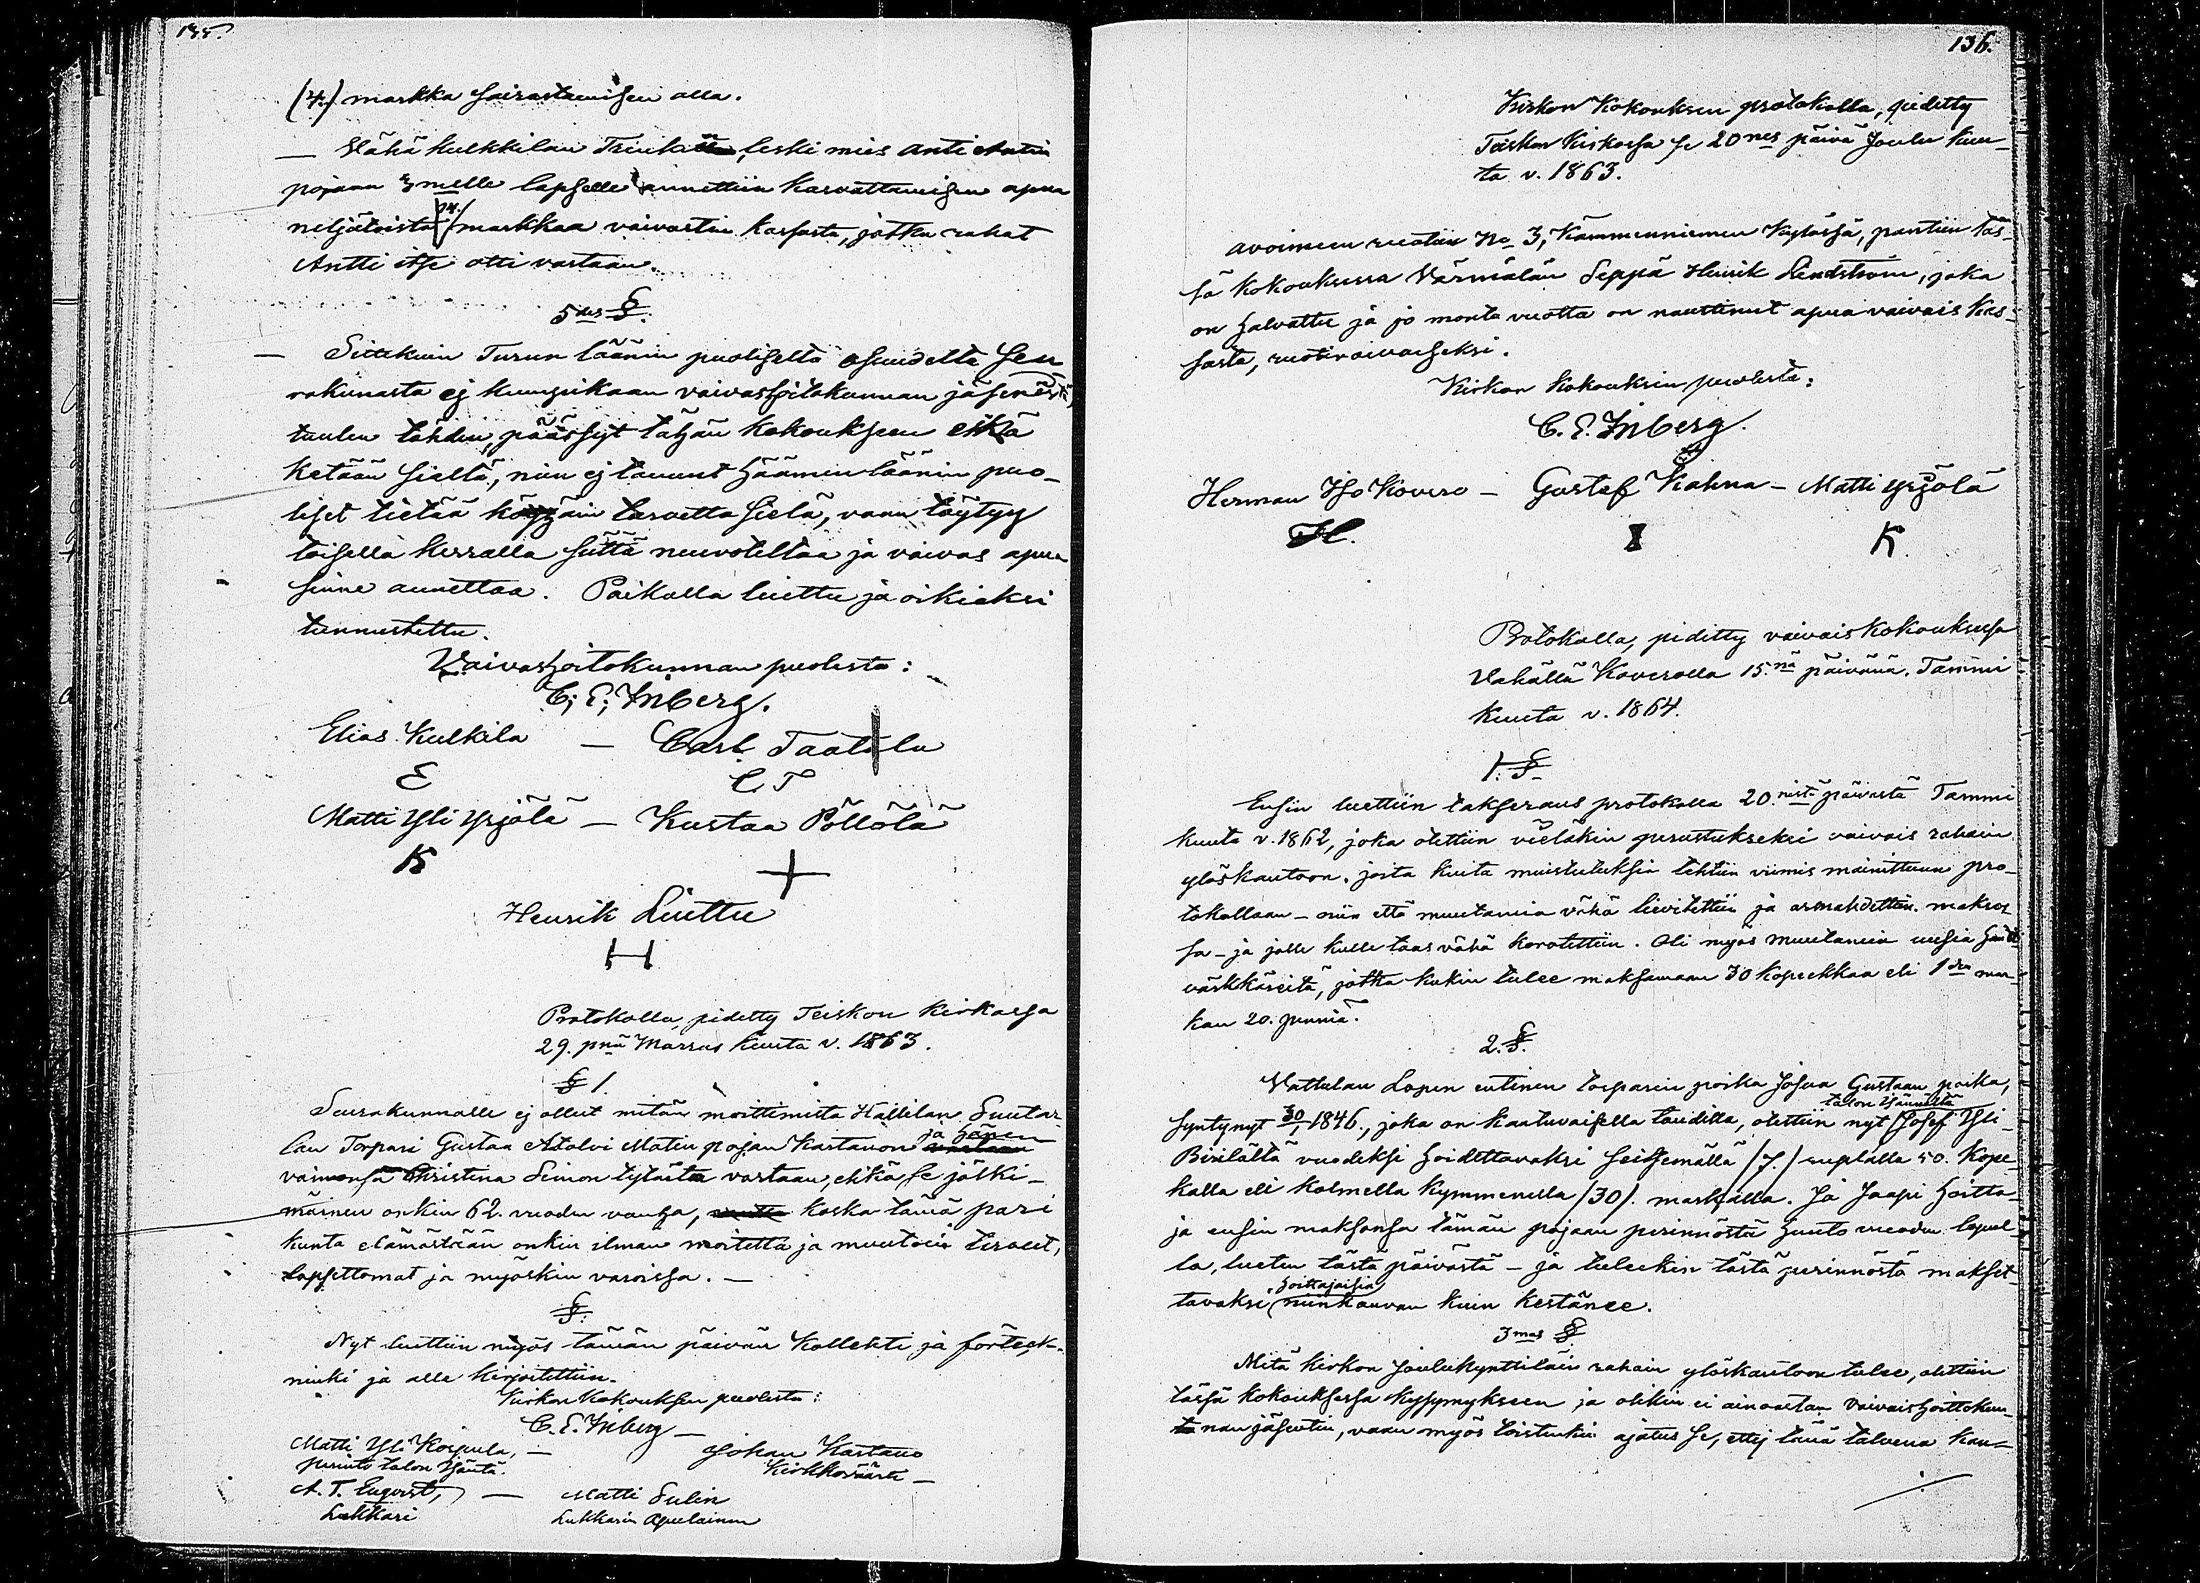 135.
(4.) markka sairastamisen alla.
— Vähä kulkkilan Trenki, leski mies Anti Antin
pojaan 3melle lapselle annettiin kasvattamisen apua
neljätoista /14./ markkaa vaivastin kassasta, jotka rahat
Antti itse otti vastaan.
5des §.
— Sittekuin Turun läänin puoliselta osuudelta Seu
rakunasta ej kungikaan vaivashoitokunnan jäsenistä,
tuulen tähden, päässyt tähän kokoukseen eikä
ketään sieltä, niin ej taunnt Häämenläänin puo-
liset tietää köyhäin tarvetta sielä, vaan täytyy
toisella kerralla siittä neuvoteltaa ja vaivas apua
sinne annettaa. Paikalla luettu ja oikiaksi
tunnustettu.
Vaivashoitokunnan puolesta:
C. E. Inberg.
Elias Kulkila — Carl Taatala
E C T
Matti Yli Yrjölä — Kustaa Pöllölä
K +
Henrik Liuttu
H
Protokolla, pidetty Teiskon Kirkossa
29. pnä Marras kuuta v. 1863.
§ 1.
Seurakunnalle ej ollut mitän moittimista Hallilan Suutar-
lan Torpari Gustaa Adolvi Matin pojan Kartanon ja hänen
vaimonsa Christina Simon tytärtä vastaan, ehkä se jälki-
mäinen onkin 62. vuoden vanha, koska tämä pari
kunta elämästään onkin ilman moitetta ja muutoin terveet,
lapsettomat ja myöskin varoissa. —
§.
Nyt luettiin myös tämän päivän Kollekti ja förteck-
ninki ja alle kirjoitettiin.
Kirkon Kokouksen puolesta:
C. E. Inberg —
Matti Yli Korpula, — Johan Kartano
perintö talon Isäntä. Kirkkoväärti —
A. T. Enqvist, — Matti Sulin
Lukkari Lukkarin Apulainen
136.
Kirkon Kokouksen protokolla, pidetty
Teiskon Kirkossa se 20nes päivä Joulu kuu-
ta v. 1863.
Avoimeen ruotiin No 3, Kämmenniemen Kylässä, pantiin täs-
sä kokouksessa Värmälän Seppä Henrik Lindström, joka
on halvattu ja jo monta vuotta on nauttinut apua vaivais kas-
sasta, ruotivaivaiseksi.
Kirkon kokouksen puolesta:
C. E. Inberg.
Herman Iso Kovero — Gustaf Kahna — Matti Yrjölä
H. K.
Protokolla, pidetty vaivaiskokouksessa
Vähällä Koverolla 15.nä päivänä Tammi
kuuta v. 1864.
1. §.
Ensin luettiin takseraus protokolla 20.nestä päivästä Tammi
kuuta v. 1862, joka otettiin vieläkin perustukseksi vaivais rahain
ylöskantoon, joita kuita muistutuksia tehtiin viimis mainittuun pro-
tokollaan — niin että muutamia vähä lievitettiin ja armahdettiin makso-
sa — ja jolle kulle taas vähä korotettiin. Oli myös muutamia uusia
värkkäreitä, jotka kukin tulee maksamaan 30 kopeekkaa eli 1den mar-
kan 20. penniä.
2. §.
Vattulan Lopen entinen torparin poika Josua Gustaan poika,
talon Isännältä
syntynyt 30/ 1846., joka on kaatuvaisella taudilla, otettiin nyt Josef Yli-
Pirilältä vuodeksi hoidettavaksi seitsemällä /7./ ruplalla 50. kope-
kalla eli kolmella kymmenella /30/. markalla. Ja saapi hoitta-
ja ensin maksonsa tämän pojan perinnöstä vuoden lopul-
la, luetun tästä päivästä — ja tuleekin tästä perinnöstä makset-
hoittajaisia
tavaksi niinkauvan kuin kestänee.
3mas §
Mitä kirkon Joulukynttiläin rahain ylöskantoon tulee, otettiin
tässä kokouksessa kysymykseen ja olikin ei ainoastan Vaivaishoittokun-
nan jäsentin, vaan myös toistenkin ajatus se, ettej tänä talvena kan-